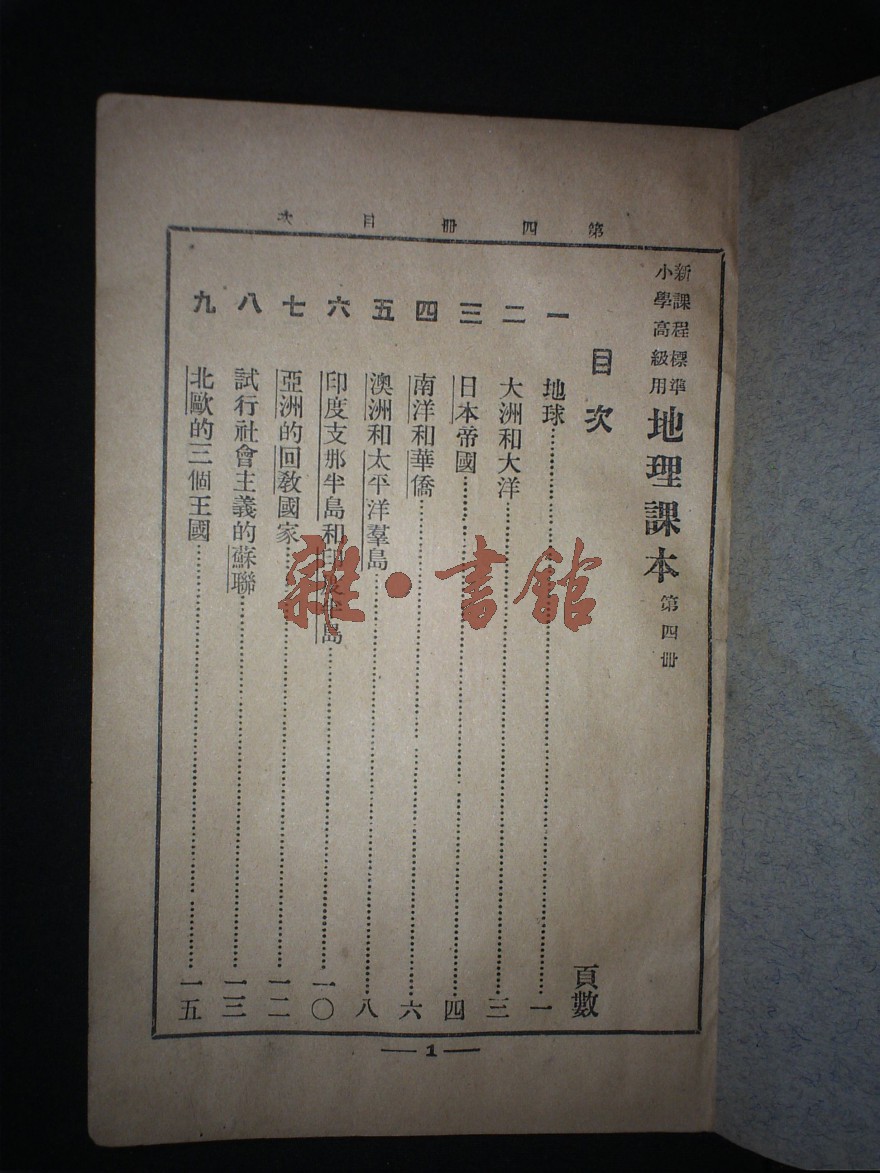 第四冊目次
新課程標準
小學高級用
地理課本 第四冊
目次 頁數
一 地球 一
二 大洲和大洋 三
三 日本帝國 四
四 南洋和華僑 六
五 澳洲和太平洋羣島 八
六 印度支那半島和印度半島 一〇
七 亞洲的回教國家 一二
八 試行社會主義的蘇聯 一三
九 北歐的三個王國 一五
— 1 —
雜·書館